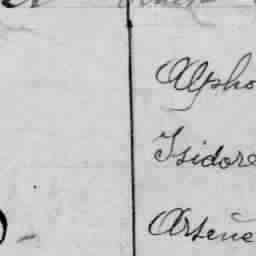 Alpho
Isidore
Arsène